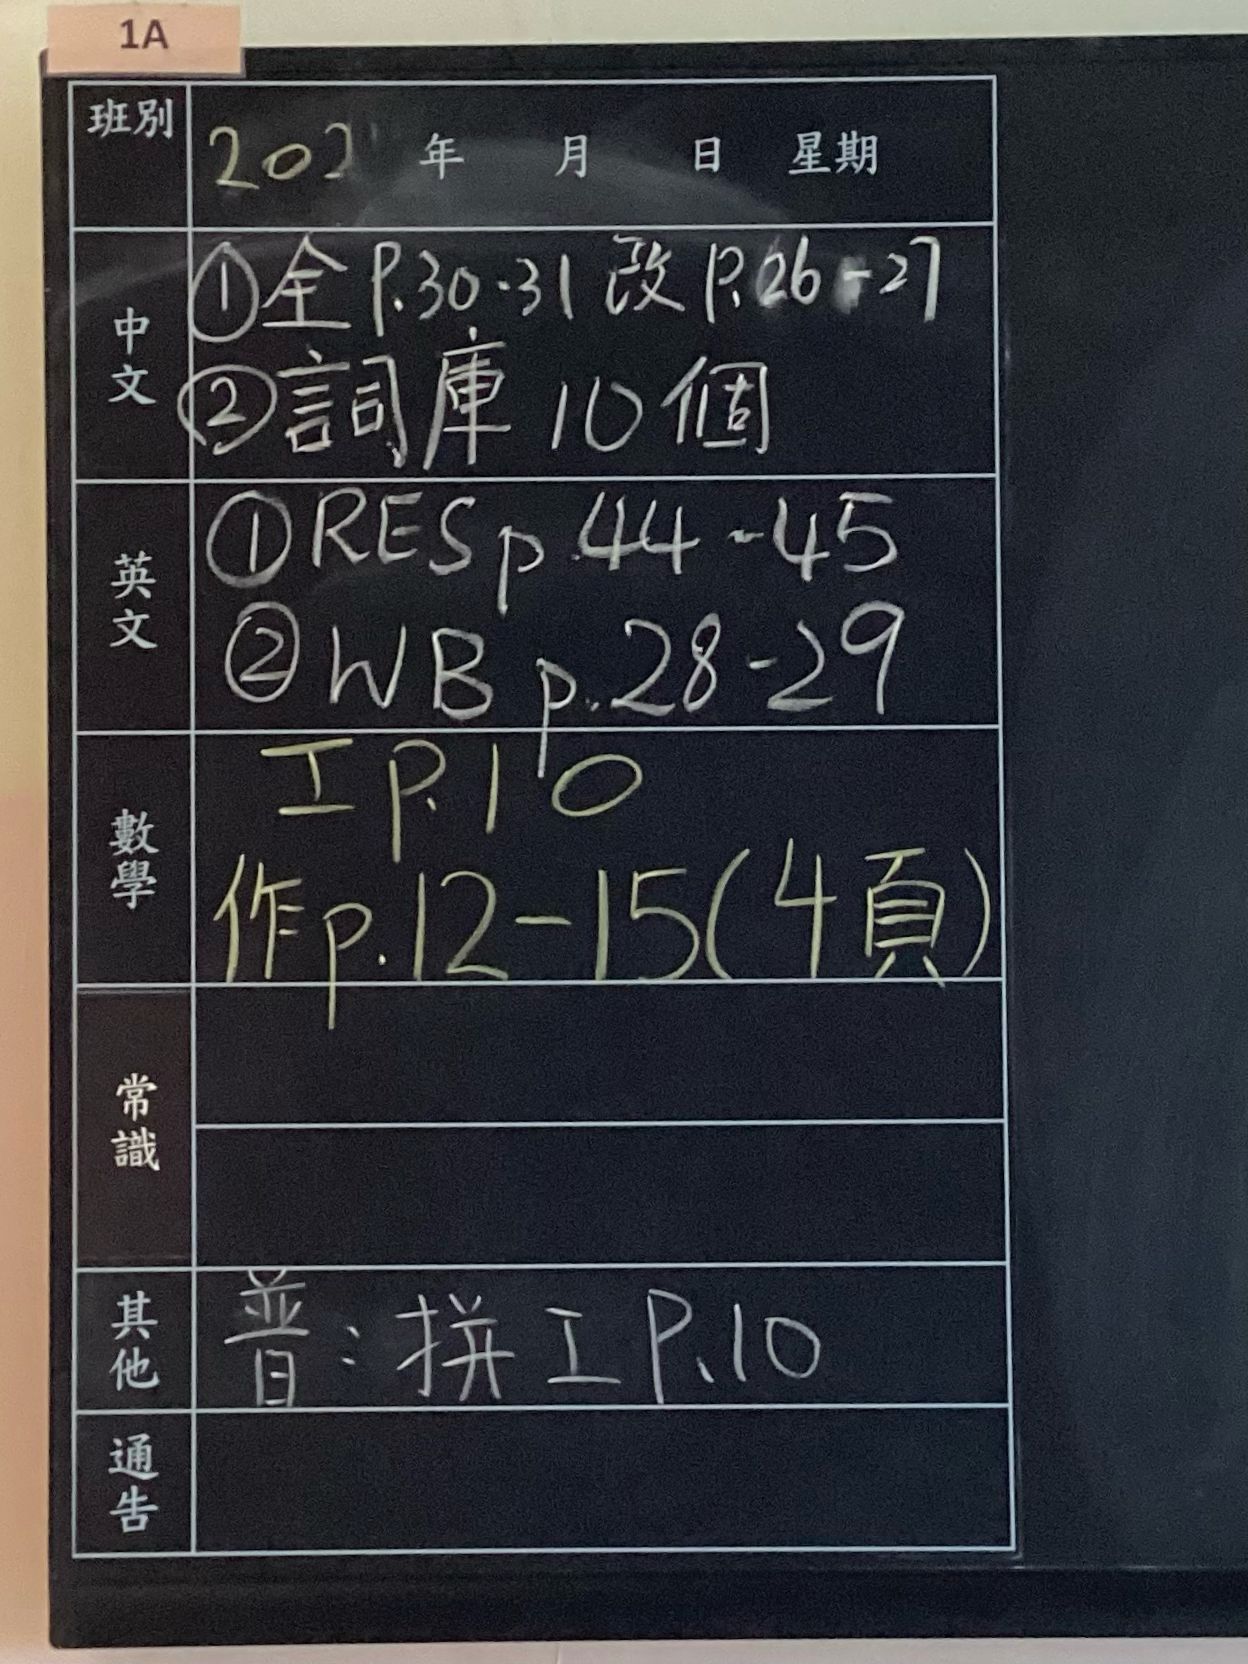 1A
班別
202 年 月 日 星期
中文
①全 P.30-31 改 P.26-27
②詞庫 10個
英文
①RES p.44-45
②WB p.28-29
數學
工 P.10
作p.12-15(4頁)
常識
其他
普：拼工 P.10
通告